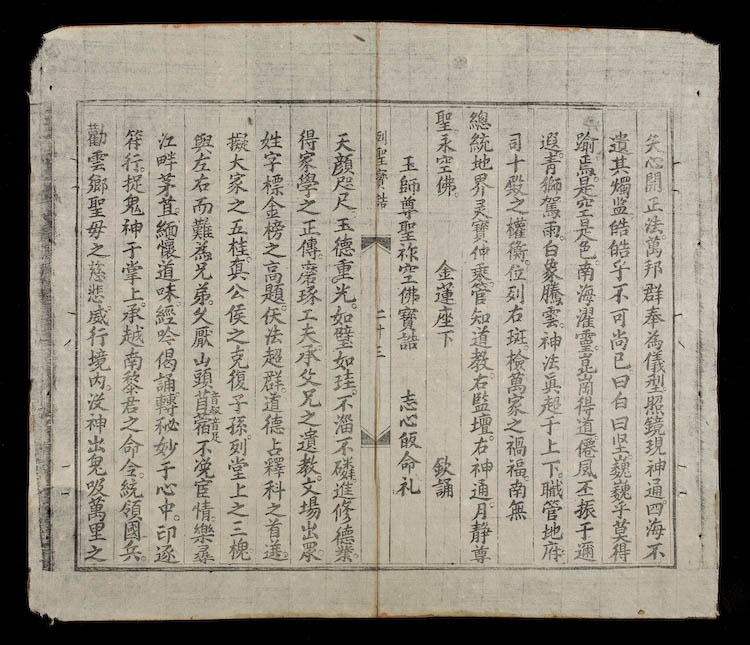 矢心開正法萬邦群奉為儀型照鏡現神通四海不
遺其燭監皓皓乎不可尚已曰白曰坚巍巍乎莫得
踰焉是空是色南海濯靈崑崗得道僊風丕振于遐
遐青獅駕雨白象騰雲神法眞超于上下職管地府
司十殿之權衡位列右班檢萬家之禍福南無
總統地界灵寶仲乘管知道教右監壇右神通月静尊
聖永空佛 金蓮座下 欽誦
玉師尊聖祢空佛寶誥 志心皈命礼
列聖寶誥 二十三
天顔咫尺玉德重光如璧如珪不淄不磷進修德業
得家學之正傳磨琢工夫承父兄之遺教文場出眾
姓字標金榜之高題伏法超群道德占釋科之首選
擬大家之五桂真公侯之克復子孫列堂上之三槐
與左右而難為兄弟父厭山頭苜蓿音叔首足不浼宦情樂尋
江畔茅苴緬懷道味經吟偈誦轉秘妙于心中印逐
符行捉鬼神于掌上承越南黎君之命令統領國兵
勸雲鄉聖母之慈悲威行境内没神出鬼吸萬里之